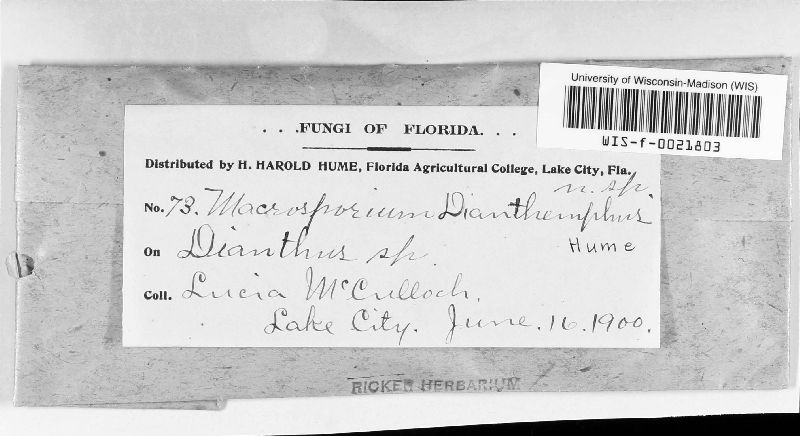 University of Wisconsin-Madison (WIS)
WIS-f-0021803
. . .FUNGI OF FLORIDA. . .
Distributed by H. HAROLD HUME, Florida Agricultural College, Lake City, Fla.
n. sp.
No. 73. Macrosporium
Hume
On Dianthus sp.
Coll. Lucia McCulloch.
Lake City. June. 16. 1900.
RICKER HERBARIUM